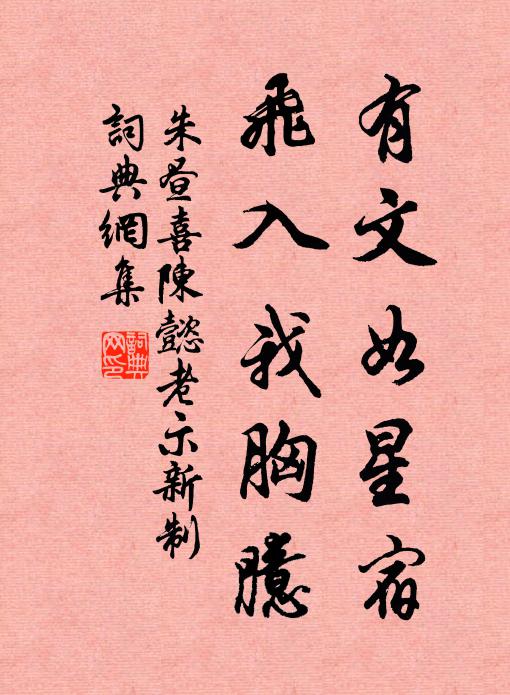 有文如星宿
飛入我胸臆
朱昼喜陳懿老示新制
詞典網集
詞典網印